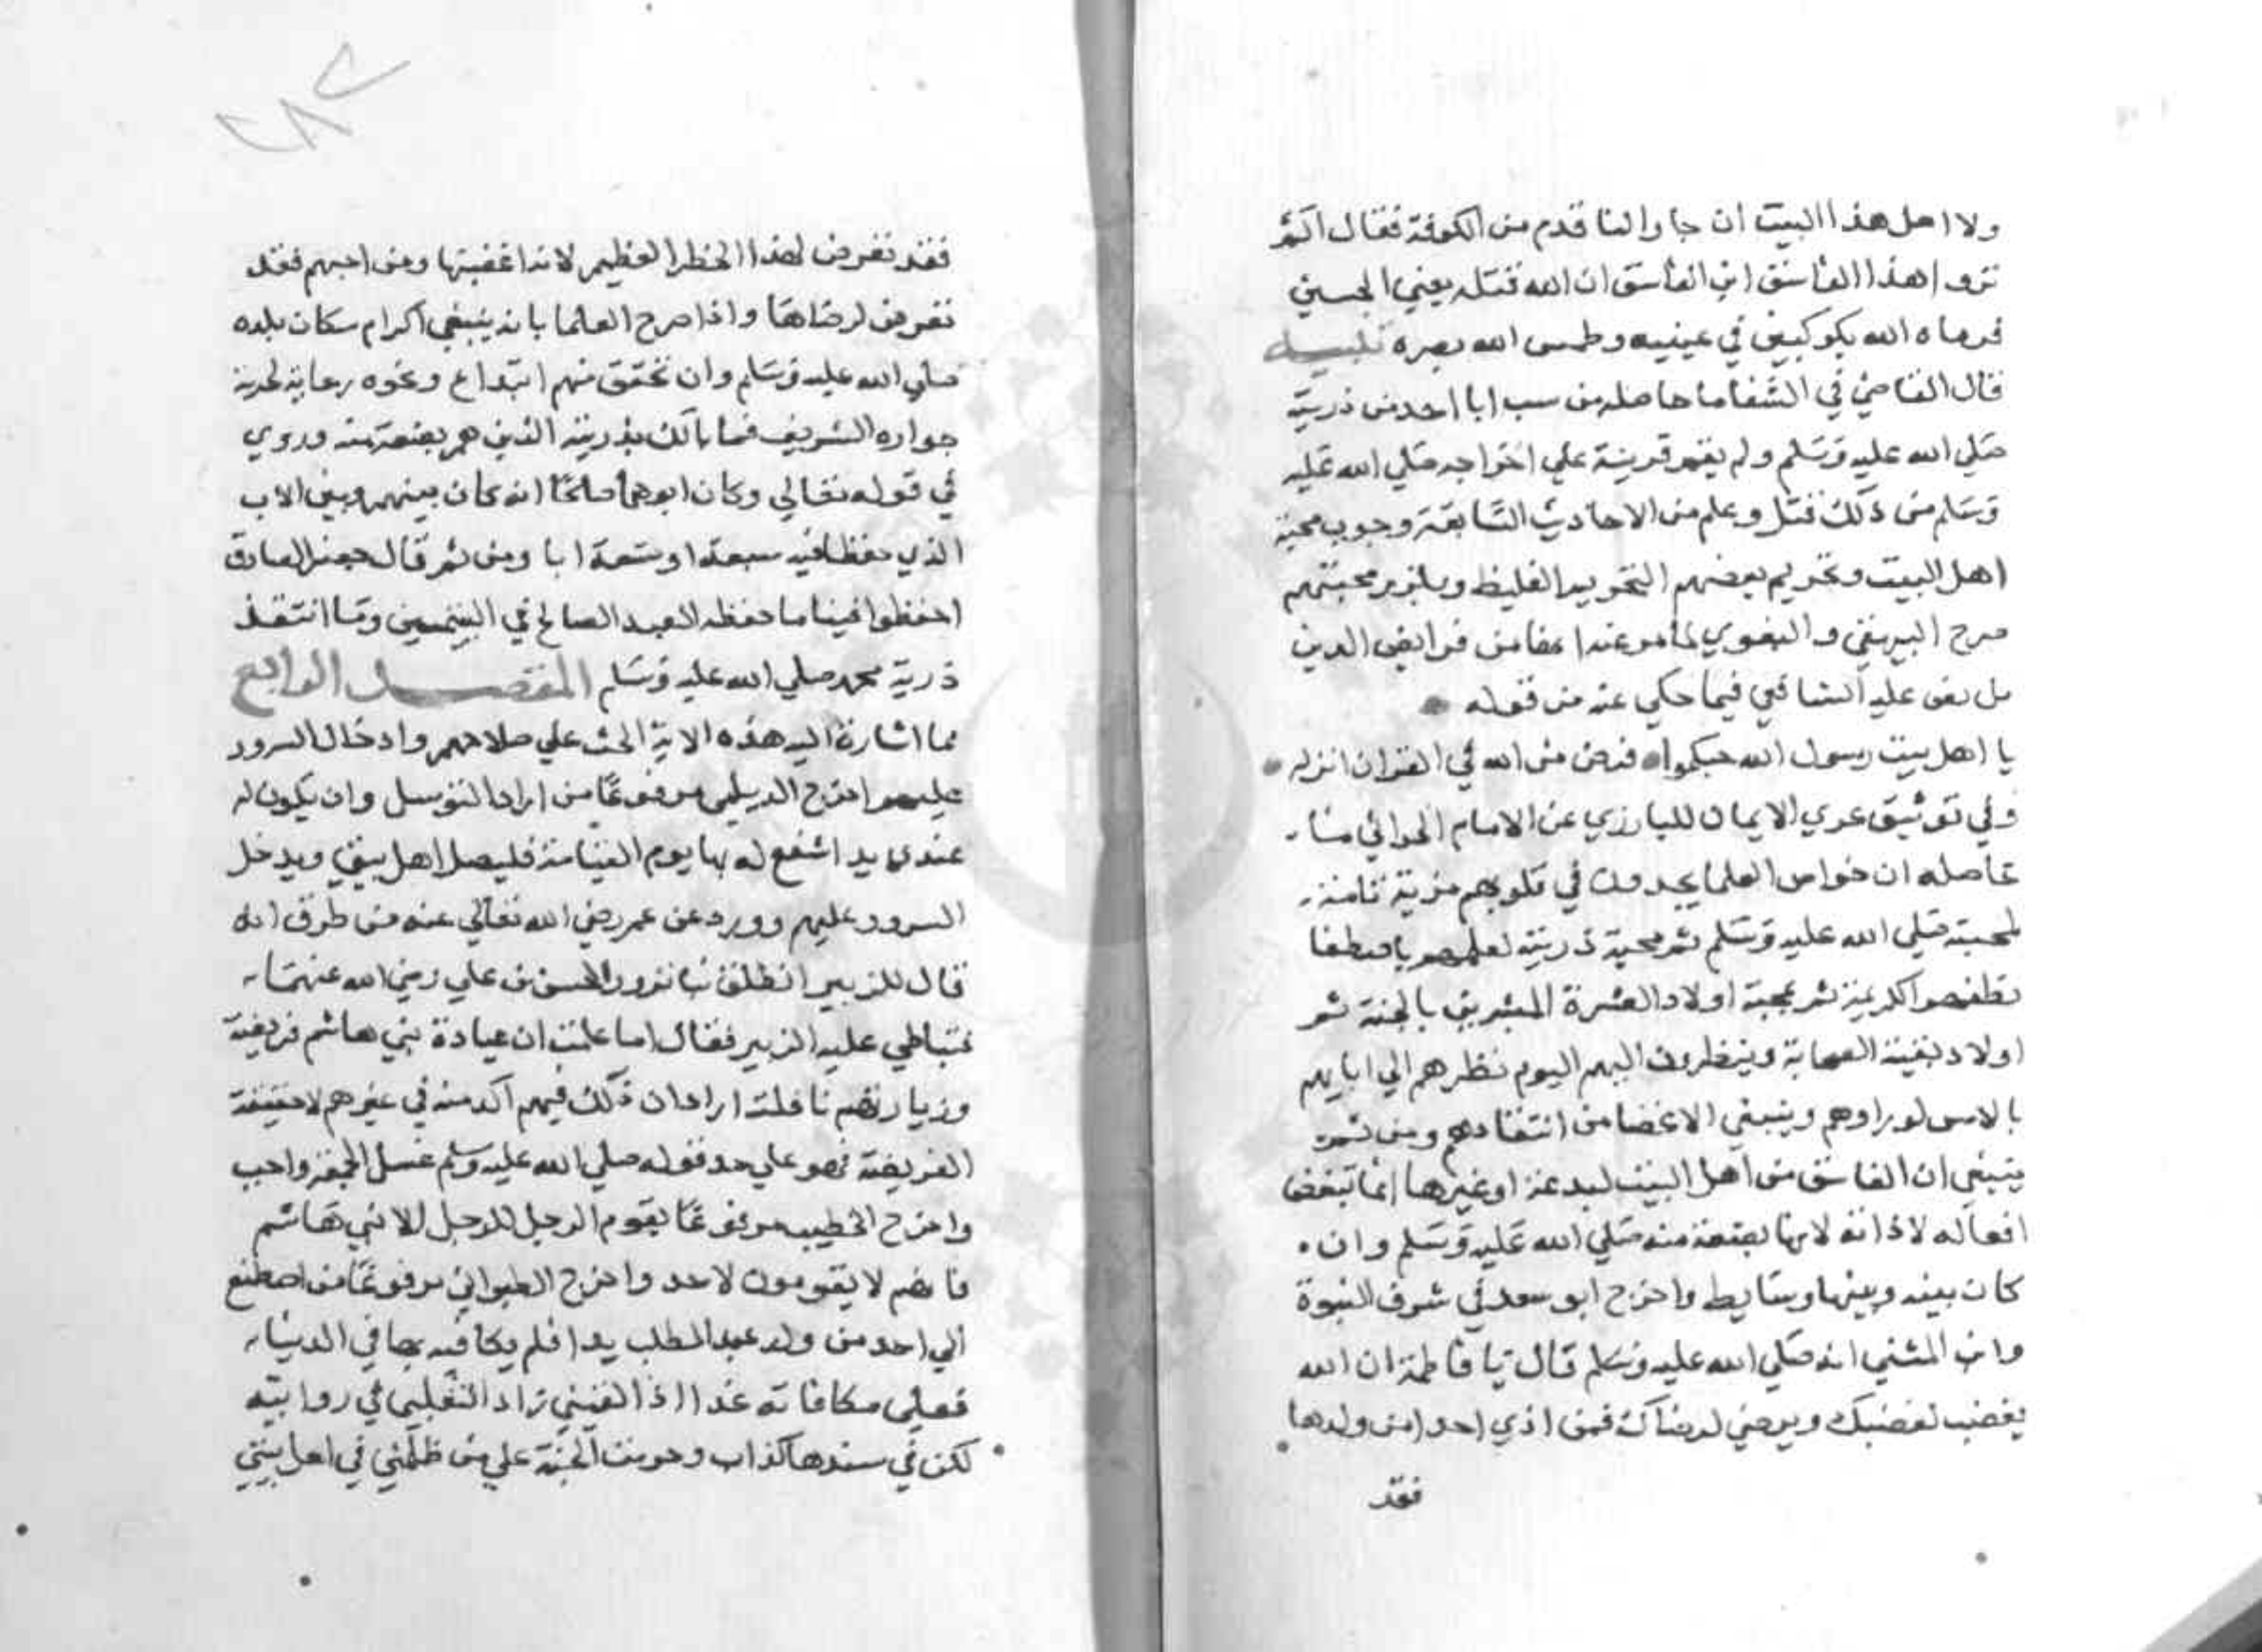 ولا اهل هذا البيت ان جارا لنا قدم من الكوفة فقال الم
تروا هذا الفاسق ابن الفاسق ان الله قتله يعني الحسين
فرماه الله بكوكبين في عينيه وطمس الله بصره تنبيه
قال القاضي في الشفا ما حاصله من سب ابا احد من ذريته
صلي الله عليه وسلم ولم يقم قرينة علي اخراجه صلي الله عليه
وسلم من ذلك قتل وعلم من الاحاديث السابقة وجوب محبة
اهل البيت وتحريم بغضهم التحريم الغليظ وبلزوم محبتهم
صرح البيهقي والبغوي
من فرايض الدين
بل نص عليه الشافعي فيما حكي عنه من قوله
يا اهل بيت رسول الله حبكموا فرض من الله في القران انزله
وفي توثيق عري الايمان للبارزي عن الامام الحرالي ما
حاصله ان خواص العلما يجدون في قلوبهم مزية تامة
لمحبته صلي الله عليه وسلم ثم محبة ذريته لعلمهم باصطفا
نطفهم الكريمة ثم بمحبة اولاد العشرة المبشرين بالجنة ثم
اولاد بقية الصحابة وينظرون اليهم اليوم نظرهم الي ابايهم
بالامس لو راوهم وينبغي الاغضا من انتقادهم ومن ثم
ينبغي ان الفاسق من اهل البيت لبدعة او غيرها انما تبغض
افعاله لا ذاته لانها بضعة منه صلي الله عليه وسلم وان
كان بينه وبينها وسايط واخرج ابو سعد في شرف النبوة
وابن المثني انه صلي الله عليه وسلم قال يا فاطمة ان الله
يغضب لغضبك ويرضي لرضاك فمن اذي احدا من ولدها
فقد
٢٨٢
فقد تعرض لهذا الخطر العظيم لانه اغضبها ومن احبهم فقد
تعرض لرضاها واذا صرح العلما بانه ينبغي اكرام سكان بلده
صلي الله عليه وسلم وان تحقق منهم ابتداع ونحوه رعاية لحرمة
جواره الشريف فما بالك بذريته الذين هم بضعة منه وروي
في قوله تعالي وكان ابوهما صالحا انه كان بينهم وبين الاب
الذي حفظا فيه سبعة او تسعة ابا ومن ثم قال جعفر الصادق
احفظوا فينا ما حفظ العبد الصالح في اليتيمين وما انتقذ
ذرية محمد صلي الله عليه وسلم المقصد الرابع
مما اشارة اليه هذه الاية الحث علي صلاحهم وادخال السرور
عليهم اخرج الديلمي مرفوعا من اراد التوسل وان يكون له
عندي يد اشفع له بها يوم القيامة فليصل اهل بيتي ويدخل
السرور عليهم وورد عن عمر رضي الله تعالي عنه من طرق انه
قال للزبير انطلق بنا نزور الحسن بن علي رضي الله عنهما
فتباطي عليه الزبير فقال اما علمت ان عيادة بني هاشم فريضة
وزيارتهم نافلة اراد ان ذلك فيهم اكد منه في غيرهم لا حقيقة
الفريضة فهو علي حد قوله صلي الله عليه وسلم غسل الجمعة واجب
واخرج الخطيب مرفوعا يقوم الرجل للرجل الا بني هاشم
فانهم لا يقومون لاحد واخرج الطبراني مرفوعا من اصطنع
الي احد من ولد عبد المطلب يدا فلم يكافيه بها في الدنيا
فعلي مكافاته غدا اذا لقيني زاد الثعلبي في روايته
لكن في سندها كذاب وحرمت الجنة علي من ظلمني في اهل بيتي